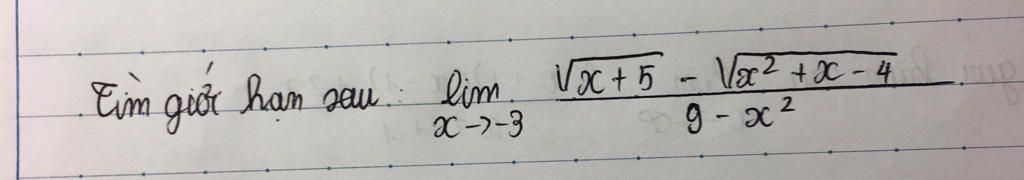 Tìm giới hạn sau: lim x→-3 (√(x+5) - √(x²+x-4))/(9-x²)